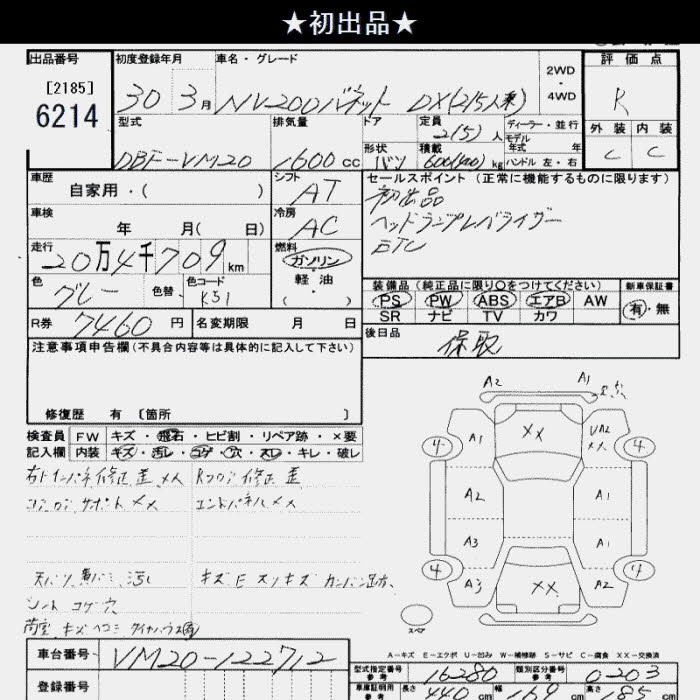 ★初出品★
出品番号
[2185]
6214
初度登録年月
30 3月
車名・グレード
NV200バネット DX(2/5人乗)
2WD
・
4WD
評価点
R
外装 内装
C C
型式
DBF-VM20
排気量
1600cc
ドア
形状 バン
定員
2(5)人
積載
600(400)kg
ディーラー・並行
モデル
年式 年
ハンドル 左・右
車歴
自家用・( )
シフト
AT
車検
年 月( 日)
冷房
AC
走行
20万4千709km
燃料
ガソリン
軽油
( )
色
グレー
色替
色コード
K51
R券 7460円
名変期限 月 日
セールスポイント(正常に機能するものに限ります)
初出品
ヘッドランプレバライザー
ETC
装備品(純正品に限り○をつけてください)
PS PW ABS エアB AW
SR ナビ TV カワ
新車保証書
有・無
後日品
保取
注意事項申告欄(不具合内容等は具体的に記入して下さい)
修復歴 有 〔箇所 〕
検査員 FW キズ・飛石・ヒビ割・リペア跡・×要
記入欄 内装 キズ・汚レ・コゲ・穴・スレ・キレ・破レ
コアロアサポートXX エンドパネルXX
シート コゲ穴
A2 A1
XX
A1 UA2
XX
4 4
A2 A1
A3 A1
4 4
A3 XX A2
スペア
A-キズ E-エクボ U-凹み W-補修跡 S-サビ C-腐食 XX-交換済
車台番号 VM20-122712
登録番号
型式指定番号
参考
16280
類別区分番号
参考
0203
車庫証明用
参考
長さ 440cm 幅 169cm 高さ 185cm